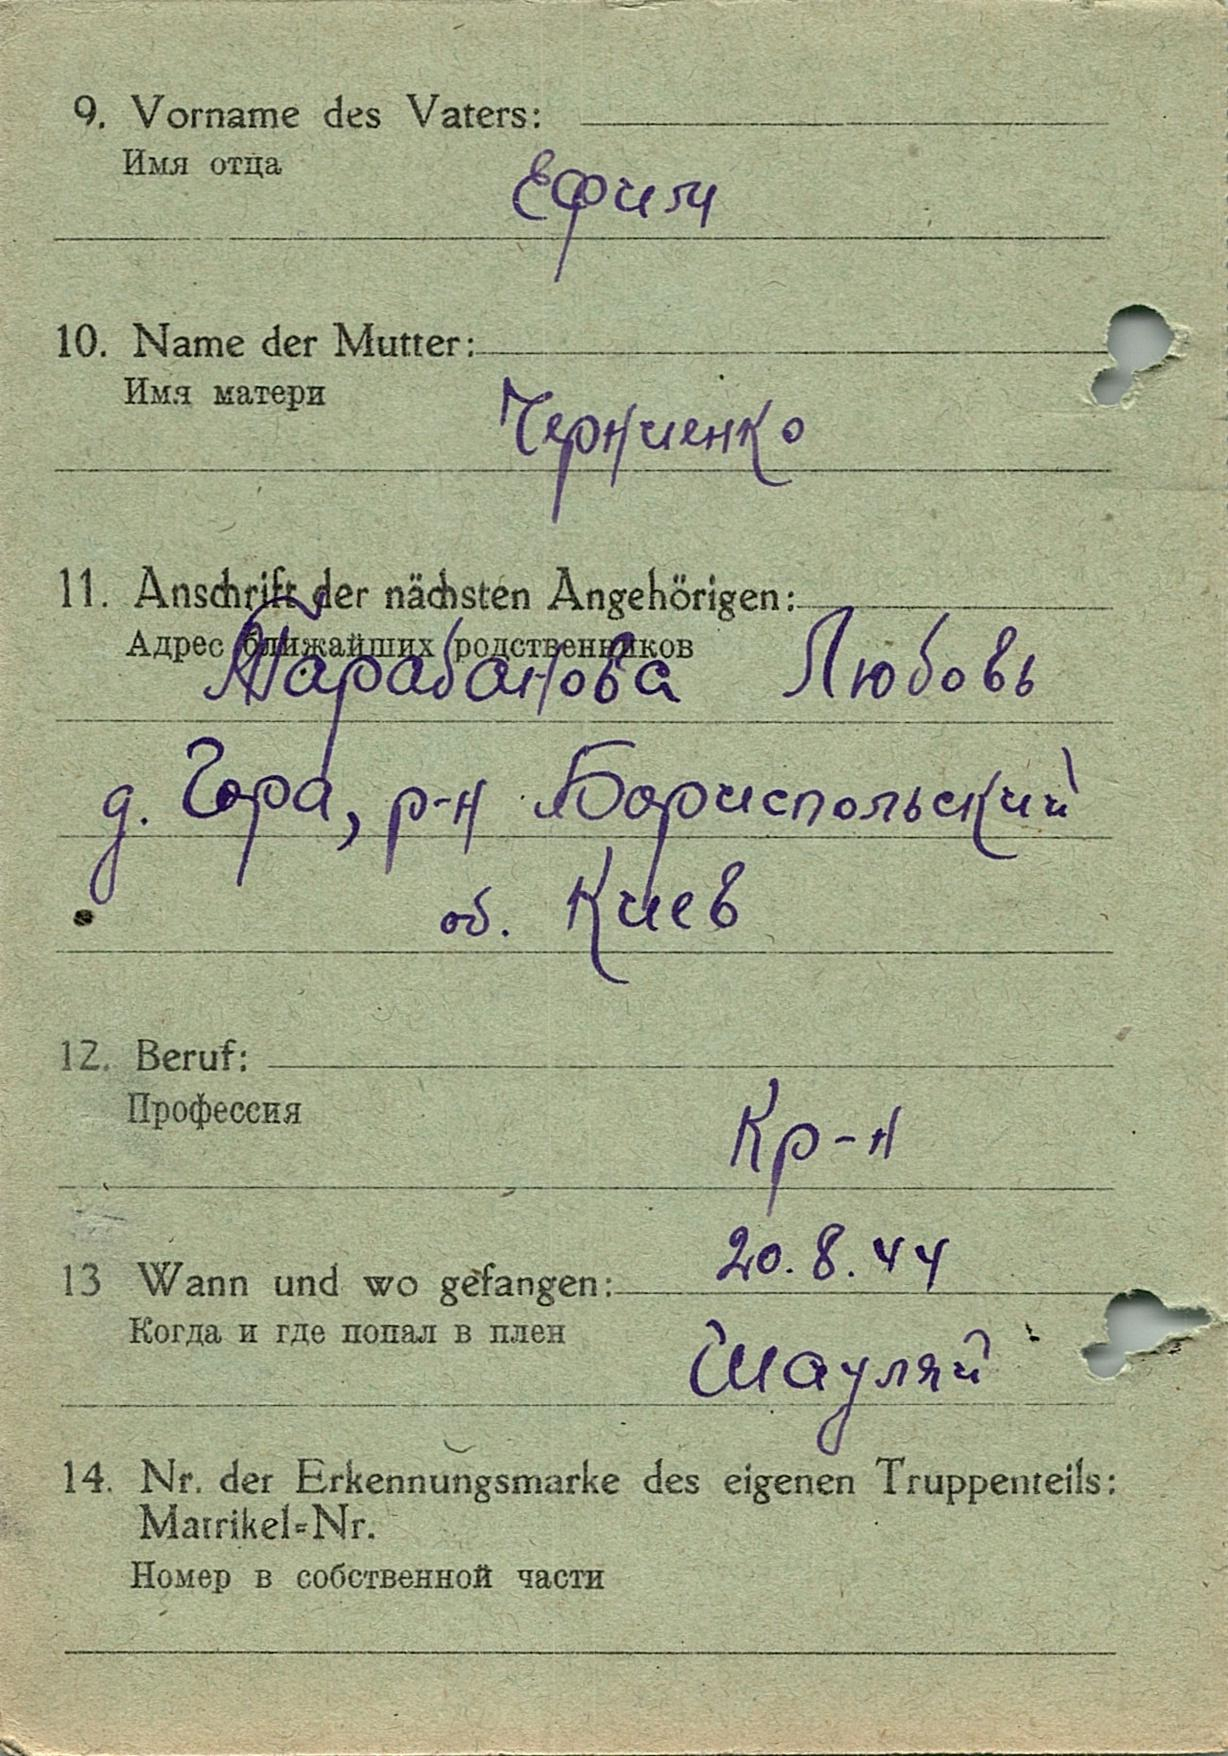 9. Vorname des Vaters:
Имя отца
Ефим
10. Name der Mutter:
Имя матери
Черниенко
11. Anschrift der nächsten Angehörigen:
Адрес ближайших родственников
Тарабанова Любовь
д. Гора, р-н Бориспольский
об. Киев
12. Beruf:
Профессия
Кр-н
20.8.44
13 Wann und wo gefangen:
Когда и где попал в плен
Шауляй
14. Nr. der Erkennungsmarke des eigenen Truppenteils:
Matrikel=Nr.
Номер в собственной части